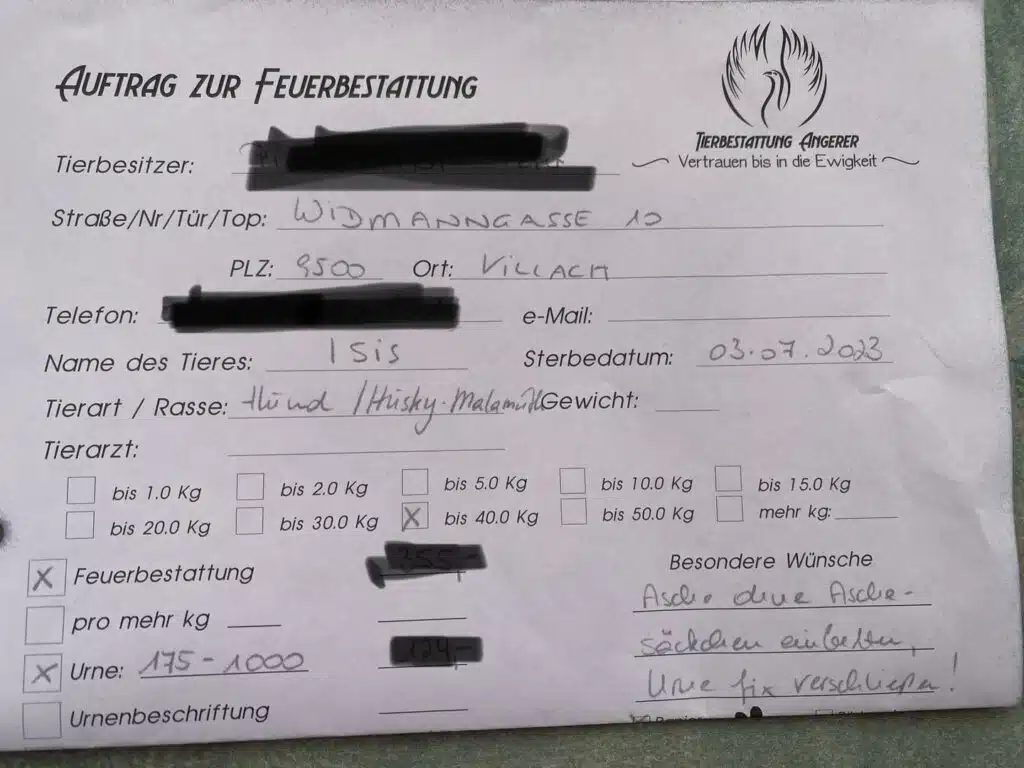 AUFTRAG ZUR FEUERBESTATTUNG
TIERBESTATTUNG ANGERER
Vertrauen bis in die Ewigkeit
Tierbesitzer:
Straße/Nr/Tür/Top: WIDMANNGASSE 10
PLZ: 9500 Ort: VILLACH
Telefon: e-Mail:
Name des Tieres: ISis Sterbedatum: 03.07.2023
Tierart / Rasse: Hund / Husky-Malamute Gewicht:
Tierarzt:
bis 1.0 Kg bis 2.0 Kg bis 5.0 Kg bis 10.0 Kg bis 15.0 Kg
bis 20.0 Kg bis 30.0 Kg X bis 40.0 Kg bis 50.0 Kg mehr kg:
X Feuerbestattung
pro mehr kg
X Urne: 175-1000
Urnenbeschriftung
Besondere Wünsche
Asche ohne Asche-
säckchen einbetten,
Urne fix verschließen!